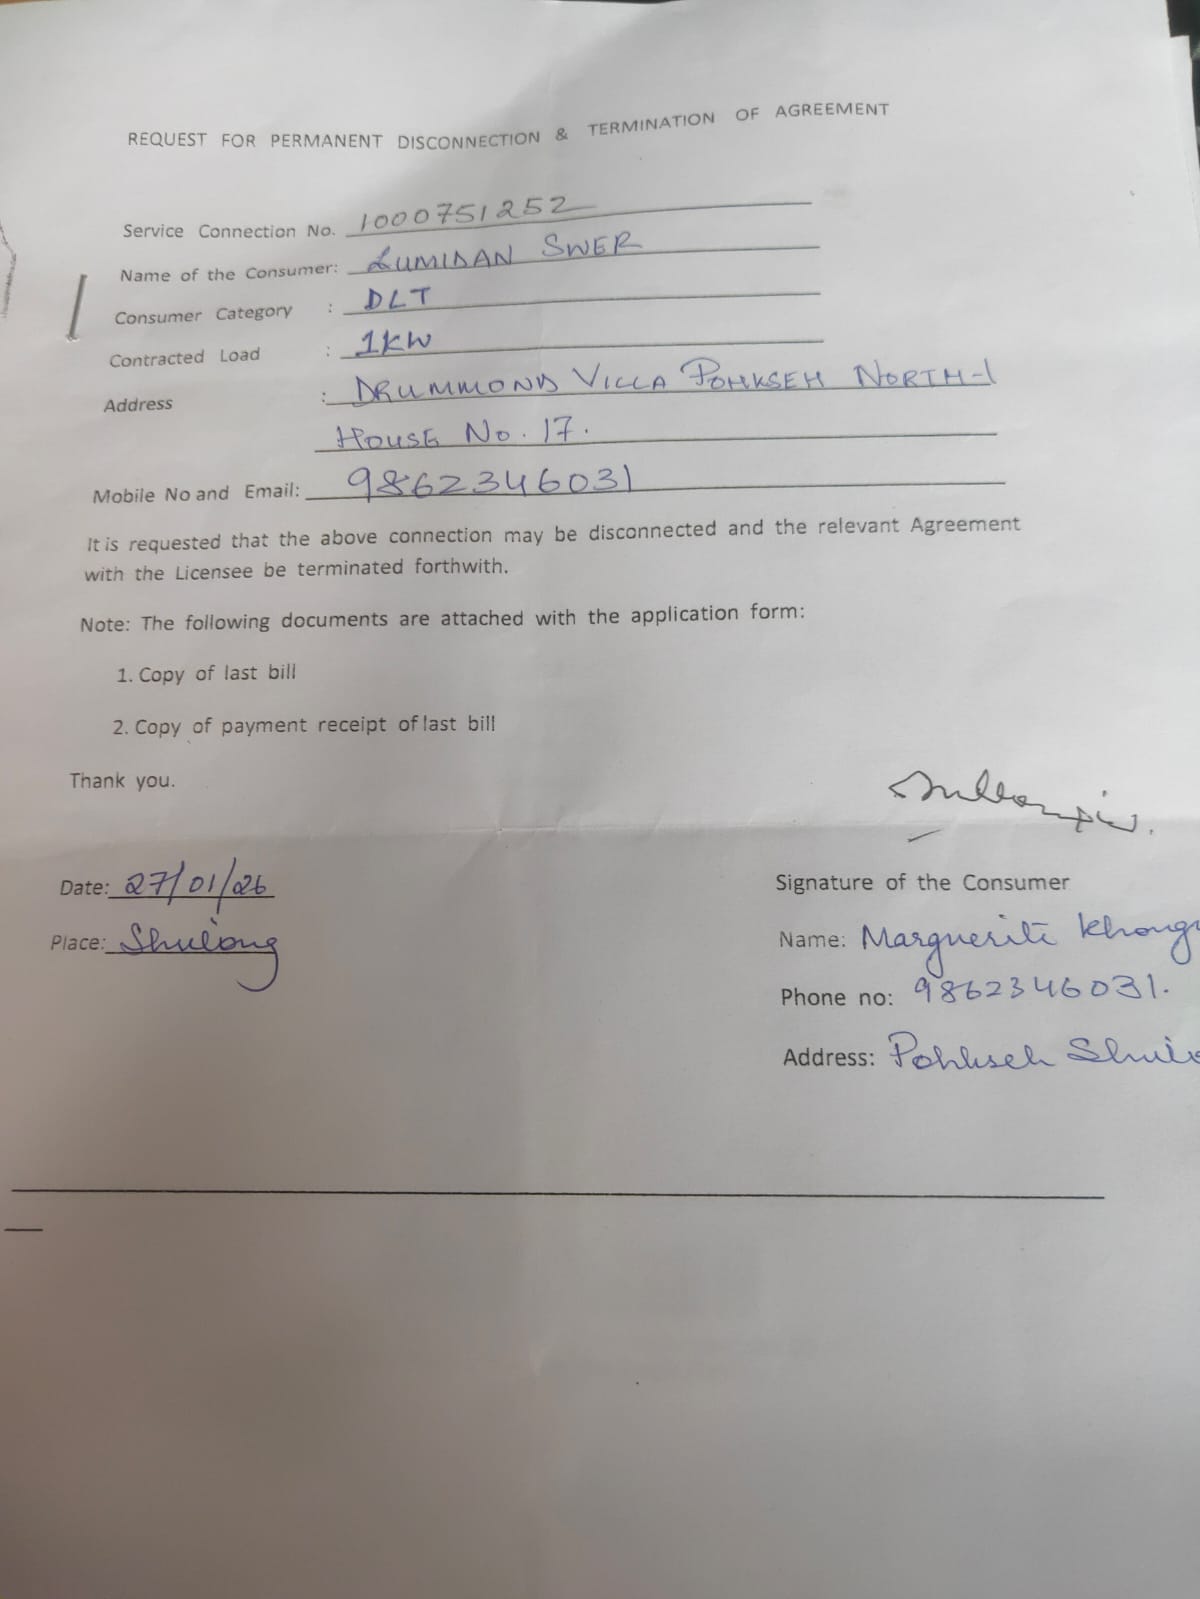 REQUEST FOR PERMANENT DISCONNECTION & TERMINATION OF AGREEMENT
Service Connection No. 1000751252
Name of the Consumer: LUMIDAN SWER
Consumer Category : DLT
Contracted Load : 1KW
Address : DRUMMOND VILLA POHKSEH NORTH-1
HOUSE No. 17.
Mobile No and Email: 9862346031
It is requested that the above connection may be disconnected and the relevant Agreement
with the Licensee be terminated forthwith.
Note: The following documents are attached with the application form:
1. Copy of last bill
2. Copy of payment receipt of last bill
Thank you.
Date: 27/01/26
Place: Shillong
Signature of the Consumer
Name: Marguerite
Phone no: 9862346031.
Address: Pohkseh